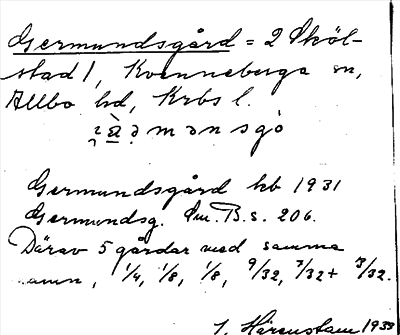 Germundsgård = 2 Sköl-
stad 1, Kvenneberga sn,
Allbo hd, Krbs l.
mənsgo
Germundsgård kb 1931
Germundsg. Sm. B. s. 206.
Därav 5 gårdar med samma
namn, 1/4, 1/8, 1/8, 9/32, 7/32 + 3/32.
J. Hårenstam 1933